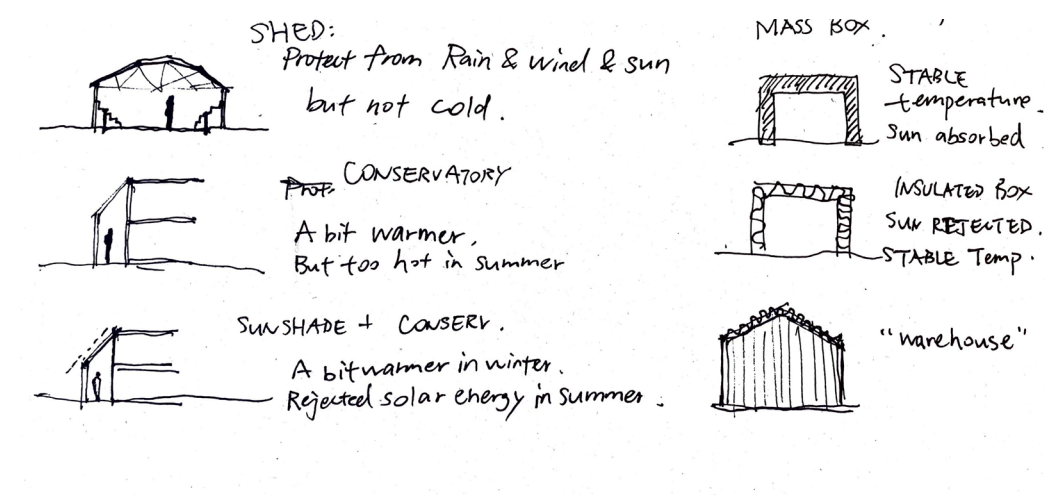 SHED:
Protect from Rain & wind & sun
but not cold.
CONSERVATORY
A bit warmer,
But too hot in summer
SUNSHADE + CONSERV.
A bit warmer in winter.
Rejected solar energy in summer.
MASS BOX.
STABLE
temperature.
Sun absorbed
INSULATED BOX
SUN REJECTED.
STABLE Temp.
"warehouse"